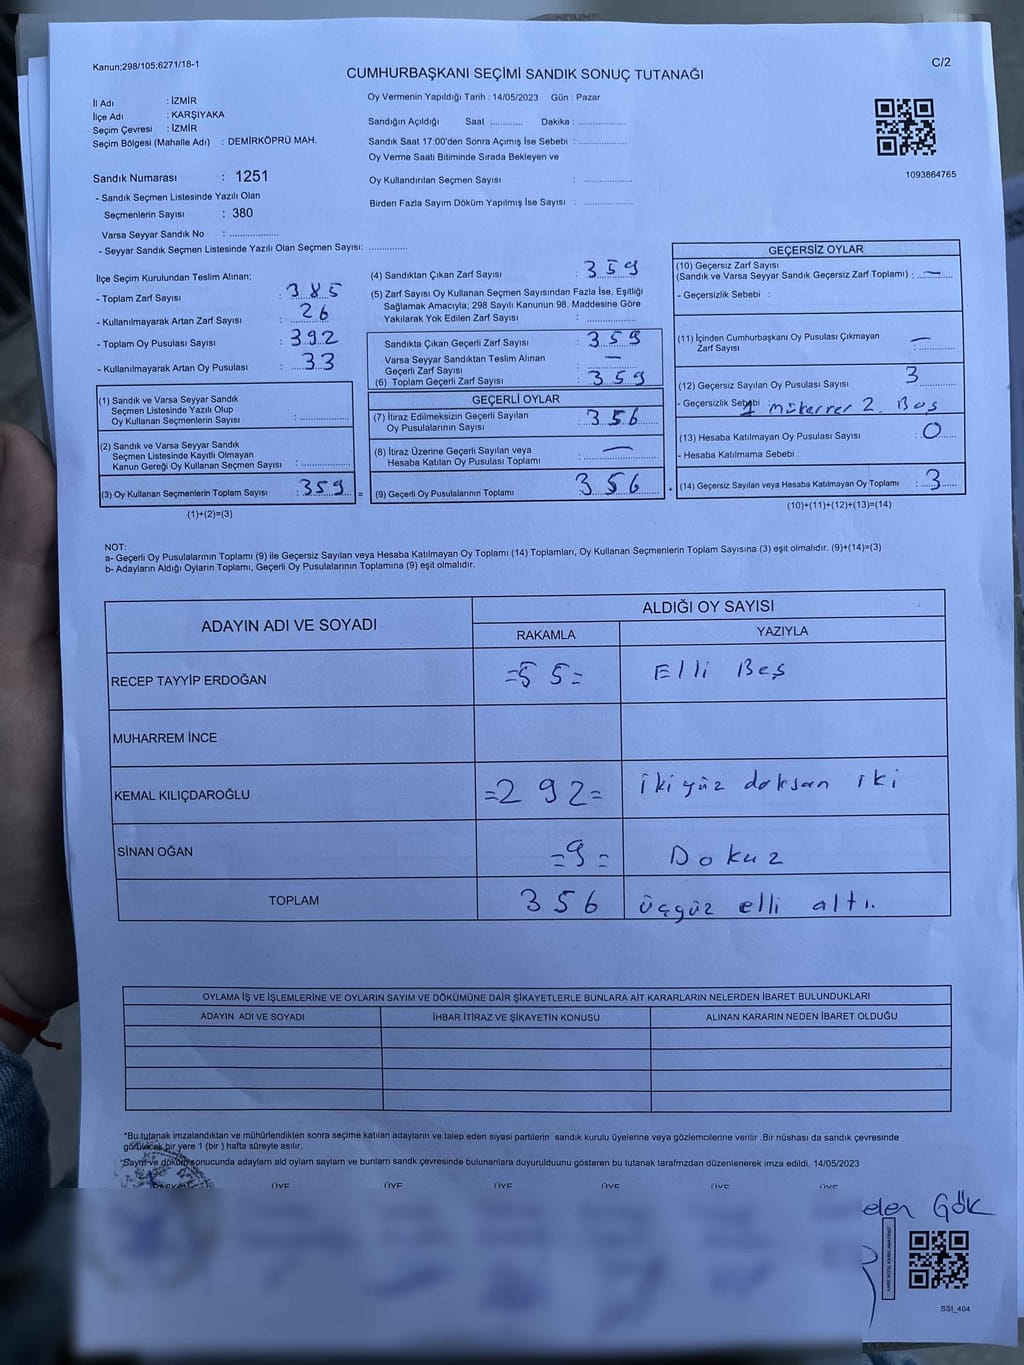 Kanun;298/105;6271/18-1
C/2
CUMHURBAŞKANI SEÇİMİ SANDIK SONUÇ TUTANAĞI
İl Adı : İZMİR
İlçe Adı : KARŞIYAKA
Seçim Çevresi : İZMİR
Seçim Bölgesi (Mahalle Adı) : DEMİRKÖPRÜ MAH.
Sandık Numarası : 1251
- Sandık Seçmen Listesinde Yazılı Olan
Seçmenlerin Sayısı : 380
Varsa Seyyar Sandık No : ..................
- Seyyar Sandık Seçmen Listesinde Yazılı Olan Seçmen Sayısı: ..............
Oy Vermenin Yapıldığı Tarih : 14/05/2023 Gün : Pazar
Sandığın Açıldığı Saat :........... Dakika : .................
Sandık Saat 17:00'den Sonra Açımış İse Sebebi : .................
Oy Verme Saati Bitiminde Sırada Bekleyen ve
Oy Kullandırılan Seçmen Sayısı : .................
Birden Fazla Sayım Döküm Yapılmış İse Sayısı : .................
1093864765
İlçe Seçim Kurulundan Teslim Alınan;
- Toplam Zarf Sayısı : 385
- Kullanılmayarak Artan Zarf Sayısı : 26
- Toplam Oy Pusulası Sayısı : 392
- Kullanılmayarak Artan Oy Pusulası : 33
(1) Sandık ve Varsa Seyyar Sandık
Seçmen Listesinde Yazılı Olup
Oy Kullanan Seçmenlerin Sayısı : ..................
(2) Sandık ve Varsa Seyyar Sandık
Seçmen Listesinde Kayıtlı Olmayan
Kanun Gereği Oy Kullanan Seçmen Sayısı : ..................
(3) Oy Kullanan Seçmenlerin Toplam Sayısı : 359 =
(1)+(2)=(3)
(4) Sandıktan Çıkan Zarf Sayısı : 359
(5) Zarf Sayısı Oy Kullanan Seçmen Sayısından Fazla İse, Eşitliği
Sağlamak Amacıyla; 298 Sayılı Kanunun 98. Maddesine Göre
Yakılarak Yok Edilen Zarf Sayısı : .................
Sandıkta Çıkan Geçerli Zarf Sayısı : 359
Varsa Seyyar Sandıktan Teslim Alınan
Geçerli Zarf Sayısı : —
(6) Toplam Geçerli Zarf Sayısı : 359
GEÇERLİ OYLAR
(7) İtiraz Edilmeksizin Geçerli Sayılan
Oy Pusulalarının Sayısı : 356
(8) İtiraz Üzerine Geçerli Sayılan veya
Hesaba Katılan Oy Pusulası Toplamı : —
(9) Geçerli Oy Pusulalarının Toplamı : 356 +
GEÇERSİZ OYLAR
(10) Geçersiz Zarf Sayısı
(Sandık ve Varsa Seyyar Sandık Geçersiz Zarf Toplamı) : —
- Geçersizlik Sebebi :
(11) İçinden Cumhurbaşkanı Oy Pusulası Çıkmayan
Zarf Sayısı : —
(12) Geçersiz Sayılan Oy Pusulası Sayısı : 3
- Geçersizlik Sebebi : 1 mükerrer 2. Boş
(13) Hesaba Katılmayan Oy Pusulası Sayısı : 0
- Hesaba Katılmama Sebebi :
(14) Geçersiz Sayılan veya Hesaba Katılmayan Oy Toplamı : 3
(10)+(11)+(12)+(13)=(14)
NOT:
a- Geçerli Oy Pusulalarının Toplamı (9) ile Geçersiz Sayılan veya Hesaba Katılmayan Oy Toplamı (14) Toplamları, Oy Kullanan Seçmenlerin Toplam Sayısına (3) eşit olmalıdır. (9)+(14)=(3)
b- Adayların Aldığı Oyların Toplamı, Geçerli Oy Pusulalarının Toplamına (9) eşit olmalıdır.
ADAYIN ADI VE SOYADI ALDIĞI OY SAYISI
RAKAMLA YAZIYLA
RECEP TAYYİP ERDOĞAN =55= Elli Beş
MUHARREM İNCE
KEMAL KILIÇDAROĞLU =292= ikiyüz doksan iki
SİNAN OĞAN =9= Dokuz
TOPLAM 356 üçyüz elli altı.
OYLAMA İŞ VE İŞLEMLERİNE VE OYLARIN SAYIM VE DÖKÜMÜNE DAİR ŞİKAYETLERLE BUNLARA AİT KARARLARIN NELERDEN İBARET BULUNDUKLARI
ADAYIN ADI VE SOYADI İHBAR İTİRAZ VE ŞİKAYETİN KONUSU ALINAN KARARIN NEDEN İBARET OLDUĞU
*Bu tutanak imzalandıktan ve mühürlendikten sonra seçime katılan adayların ve talep eden siyasi partilerin sandık kurulu üyelerine veya gözlemcilerine verilir .Bir nüshası da sandık çevresinde
görülecek bir yere 1 (bir ) hafta süreyle asılır.
*Sayım ve döküm sonucunda adayların ald oyların sayların ve bunların sandk çevresinde bulunanlara duyurulduunu gösteren bu tutanak tarafmzdan düzenlenerek imza edildi. 14/05/2023
BAŞKAN ÜYE ÜYE ÜYE ÜYE ÜYE ÜYE
Gök
SSI_404